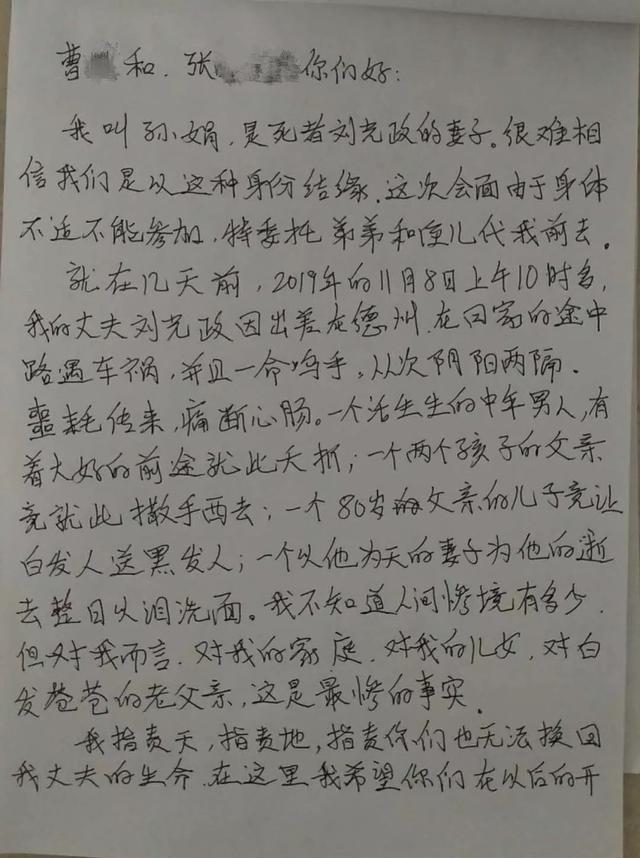 曹 和、张 你们好：
我叫孙娟，是死者刘光政的妻子。很难相
信我们是以这种身份结缘，这次会面由于身体
不适不能参加，特委托弟弟和侄儿代我前去。
就在几天前，2019年的11月8日上午10时多，
我的丈夫刘光政因出差在德州，在回家的途中
路遇车祸，并且一命呜乎，从次阴阳两隔．
噩耗传来，痛断心肠。一个活生生的中年男人，有
着大好的前途就此夭折；一个两个孩子的父亲
竟就此撒手西去；一个80岁的父亲的儿子竟让
白发人送黑发人；一个以他为天的妻子为他的逝
去整日以泪洗面。我不知道人间惨境有多少．
但对我而言．对我的家庭．对我的儿女，对白
发苍苍的老父亲，这是最惨的事实．
我指责天，指责地，指责你们也无法换回
我丈夫的生命．在这里我希望你们在以后的开